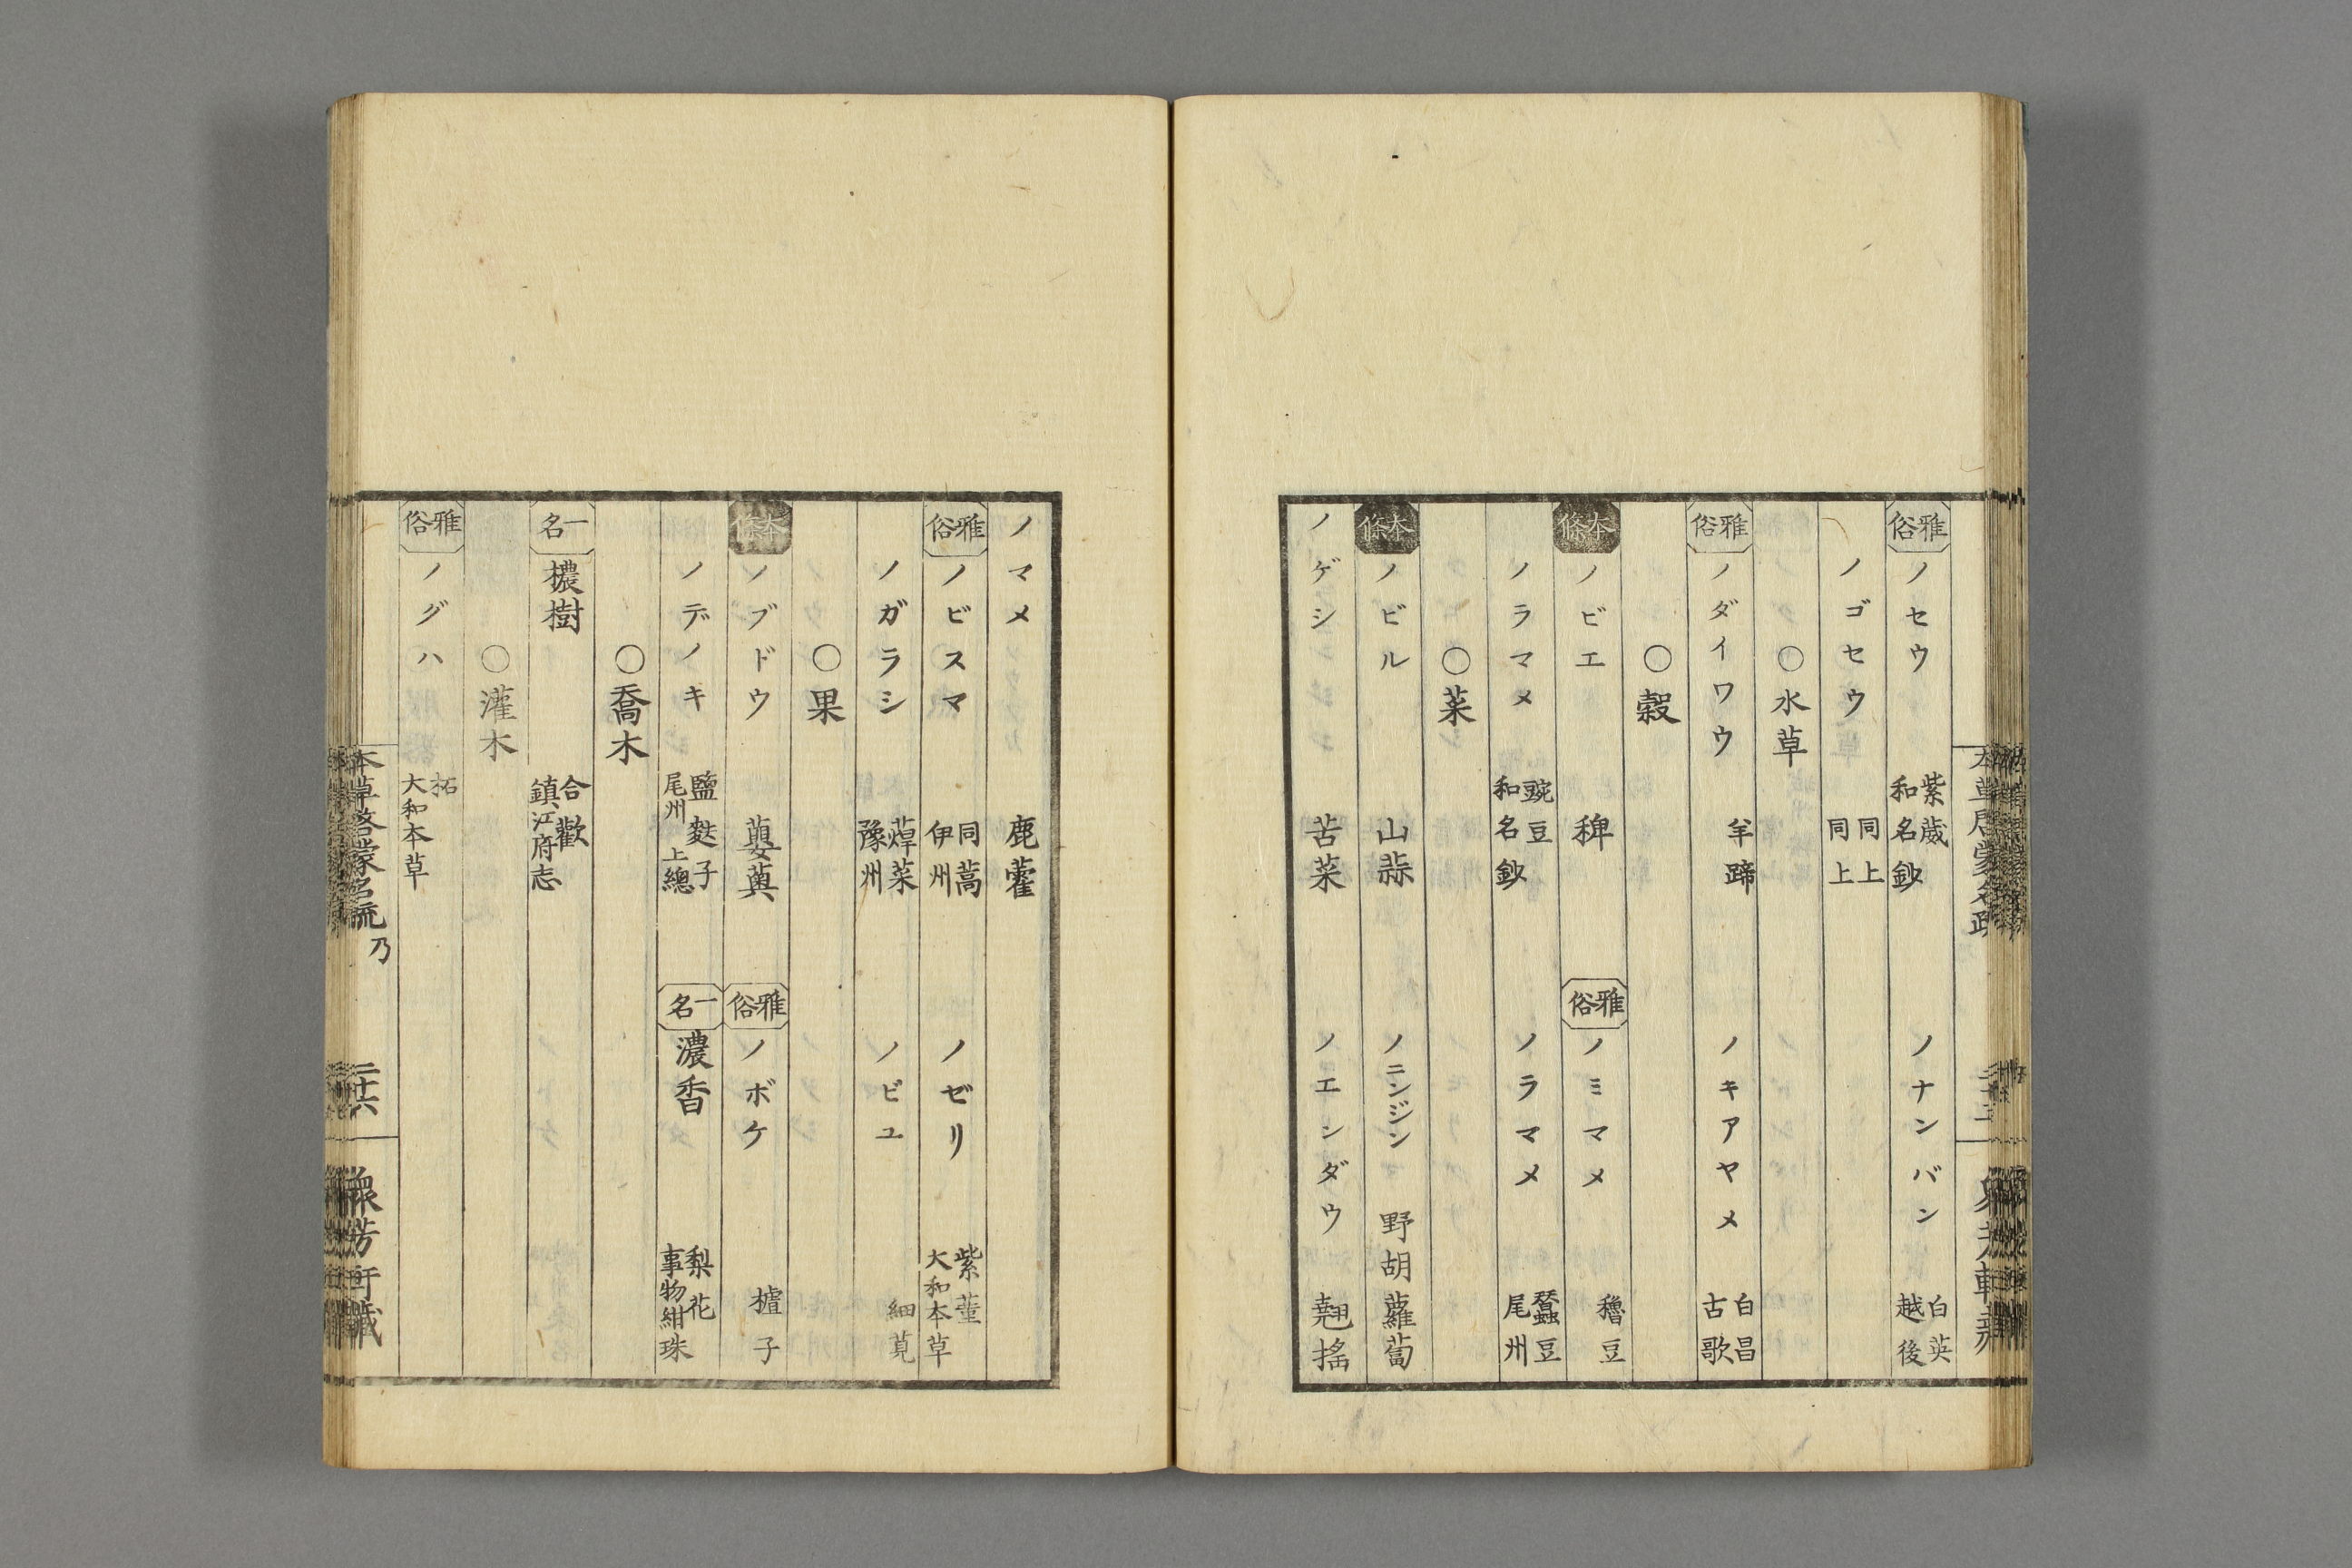 雅俗 ノセウ 紫葳 和名鈔 ノナンバン 白英 越後
ノゴセウ 同上 同上
○水草
雅俗 ノダイワウ 羊蹄 ノキアヤメ 白昌 古歌
○穀
本條 ノビエ 稗 雅俗 ノミマメ 穭豆
ノラマメ 豌豆 和名鈔 ノラマメ 蠶豆 尾州
○菜
本條 ノビル 山蒜 ノニンジン 野胡蘿蔔
ノゲシ 苦菜 ノエンダウ 翹搖
ノマメ 鹿藿
雅俗 ノビスマ 同蒿 伊州 ノゼリ 紫菫 大和本草
ノガラシ 蔊菜 豫州 ノビユ 細莧
○果
本條 ノブドウ 蘡薁 雅俗 ノボケ 樝子
ノデノキ 鹽麩子 尾州 上總 一名 濃香 梨花 事物紺珠
○喬木
一名 檂樹 合歡 鎮江府志
○灌木
雅俗 ノグハ 柘 大和本草
本草啓蒙名疏 乃 二十六 衆芳軒藏